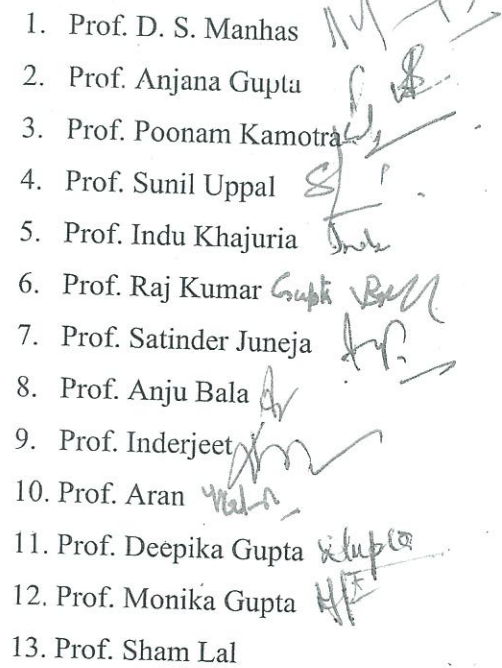 1. Prof. D. S. Manhas
2. Prof. Anjana Gupta
3. Prof. Poonam Kamotra
4. Prof. Sunil Uppal
5. Prof. Indu Khajuria
6. Prof. Raj Kumar Gupta
7. Prof. Satinder Juneja
8. Prof. Anju Bala
9. Prof. Inderjeet
10. Prof. Aran
11. Prof. Deepika Gupta
12. Prof. Monika Gupta
13. Prof. Sham Lal